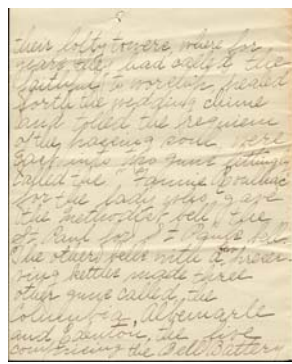 8
their lofty towers, where for
years they had called the
faithful to worship, pealed
forth the wedding chime
and tolled the requiem
of the passing soul, were
guns fittingly
called the "Fannie Roulhac
for the lady who gave
the methodist bell, "the
St. Paul for St. Pauls bell.
The others bells with a preser-
ving kettles made three
other guns called, the
Columbia, Albemarle
and Edenton, the five
comprising the Bell Battery